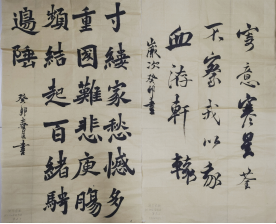 寄意寒星荃
不察我以我
血荐軒轅
歲次癸卯書
寸縷家愁憾多
重國難悲庚腸
頻结起百緒騁
邊陲
癸卯春書